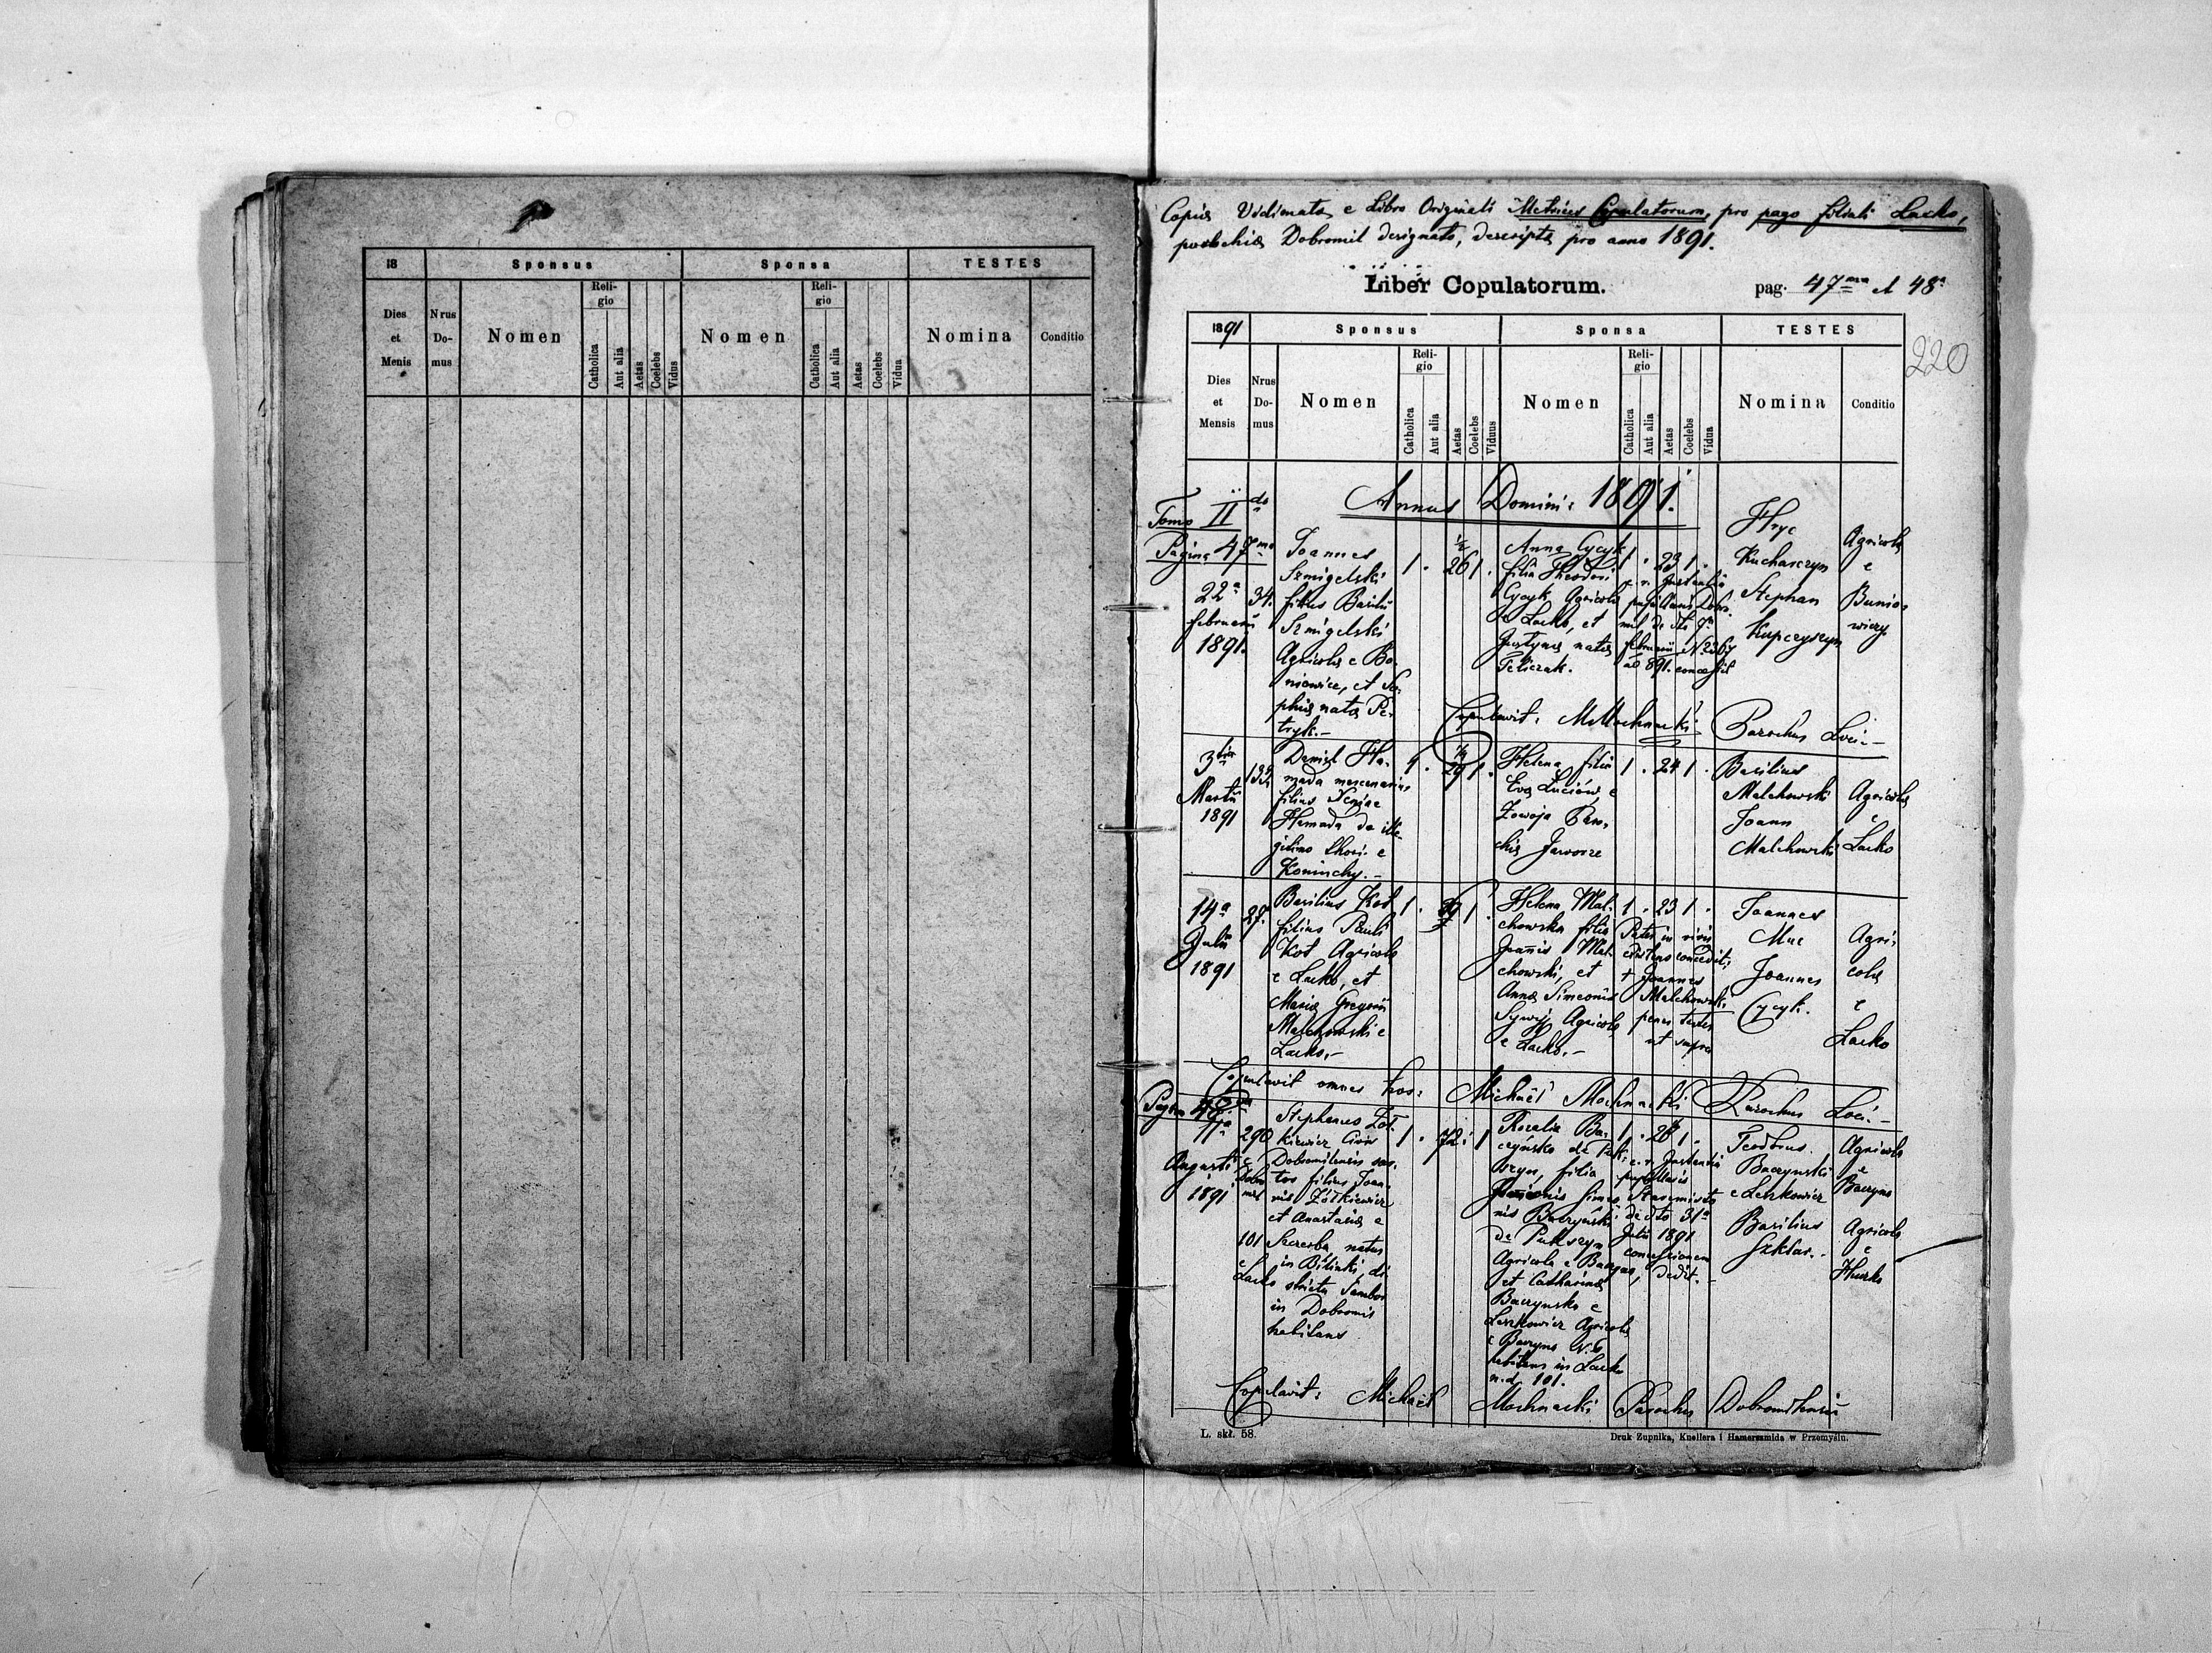 18
Sponsus
Sponsa
TESTES
Dies et Menis
Nrus Do- mus
Nomen
Reli- gio
Catholica
Aut alia
Aetas
Coelebs
Vidus
Nomen
Reli- gio
Catholica
Aut alia
Aetas
Coelebs
Vidua
Nomina
Conditio
Copia Vidimata e Libro Originali Metrices Copulatorum, pro pago filiali Lacko,
parochia Dobromil designato, descripta pro anno 1891.
Liber Copulatorum.
pag. 47ma et 48a
220
1891
Sponsus
Sponsa
TESTES
Dies et Mensis
Nrus Do- mus
Nomen
Reli- gio
Catholica
Aut alia
Aetas
Coelebs
Viduus
Nomen
Reli- gio
Catholica
Aut alia
Aetas
Coelebs
Vidua
Nomina
Conditio
Annus Domini: 1891.
Tomo II do
Pagina 47ma
22a
februarii
1891.
34.
Joannes
Szmigelski
filius Basilii
Szmigelski
Agricola e Bo-
niowice, et So-
phia nata Pe-
tryk.-
1 . 26 1 .
Anna Cycyk
filia Theodori
Cycyk Agricola
e Lacko, et
Justyna nata
1 . 23 1 .
Hryc
Kucharczyn
Stephan
Kupczyszyn
Agricola
e
Bunio-
wiczy
Copulavit: M Mochnacki Parochus Loci.-
3tia
Martii
1891
132
Daniel Ha-
mada mercenarius
filius Xeniae
Hamada de ille-
gitimo thori e
1 . 29 1 .
Helena filia
Eva Luciów e
Zawoja Paro-
chia Jaworze
1 . 24 1 .
Basilius
Malchowski
Joann
Malchowski
Agricola
e
Lacko
14a
Julii
1891
27.
Basilius Kot
filius Pauli
Kot Agricola
e Lacko, et
Maria Gregorii
Malchowski e
Lacko.-
1 . 1 .
Helena Mal-
chowska filia
Joannis Mal-
chowski, et
Anna Simeonis
Agricola
e Lacko.-
1 . 23 1 .
Pater in vivis
existens concedit;
+ Joannes
Malchowski
penes testes
ut supra
Joannes
Mac
Joannes
Cycyk.
Agri-
cola
e
Lacko
Copulavit omnes hos: Michaël Mochnacki Parochus Loci.-
Pagina 48va
11a
Augusti
1891
290
e
Dobro
mil
101
e
Lacko
Stephanus Żół-
kiewicz Civis
Dobromilensis
filius Joan-
nis Żółkiewicz
et Anastasia e
Szczerba natus
in Bilinki, di-
stricta Sambor
in Dobromil
habitans
1 . 72 . 1
Rosalia Ba-
czyńska de
filia
Simeo-
nis Baczyński
de
Agricola e Baczyna,
et Catharina
Baczynska e
Leszkowicz Agricola
e Baczyna N. 6
habitans in Lacko
n.d. 101.
1 . 28 1 .
de dto 31a
Julii 1891
concessionem
dedit.-
Teodorus
Baczynski
e Leszkowicz
Basilius
Szklar.
Agricola
e
Baczyna
Agricola
e
Copulavit: Michaël Mochnacki Parochus Dobromilensis
L. skł. 58.
Druk Zupnika, Knollera i Hamerszmida w Przemyślu.